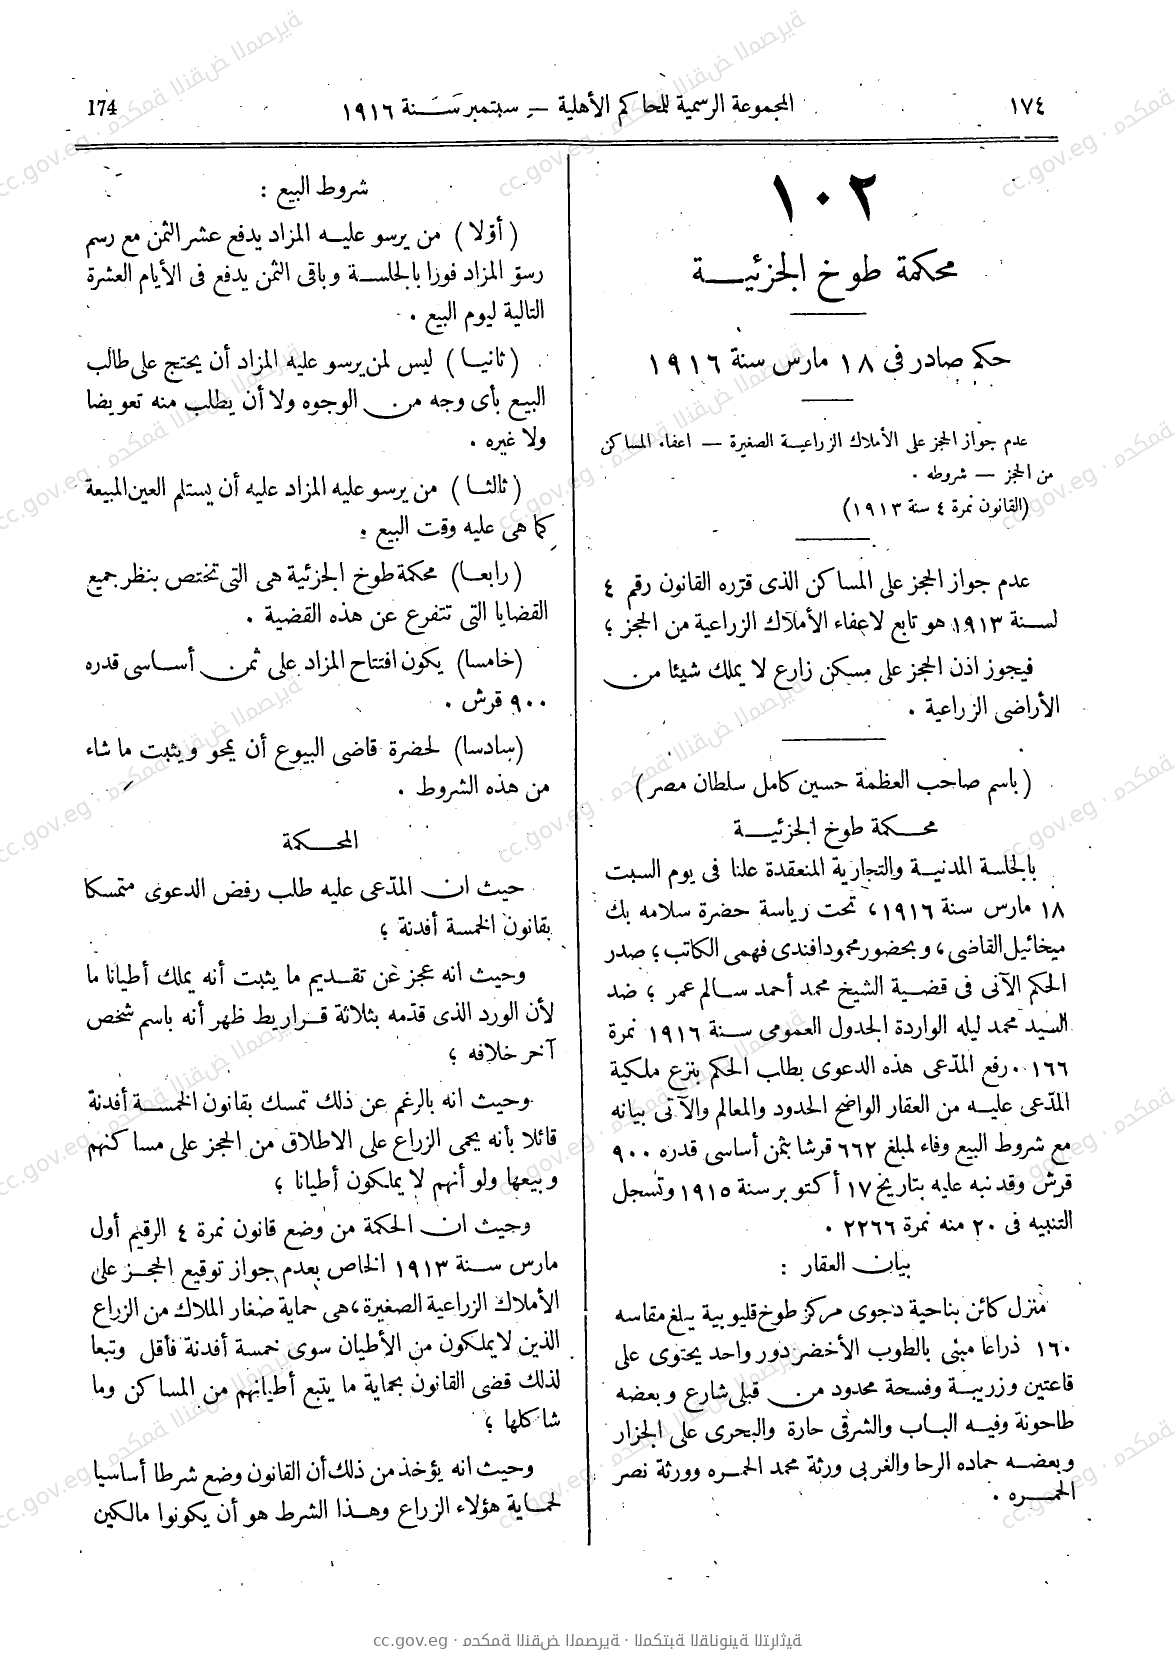 ١٧٤
المجموعة الرسمية للمحاكم الأهلية — سبتمبر سنة ١٩١٦
174
١٠٢
محكمة طوخ الجزئية
حكم صادر فى ١٨ مارس سنة ١٩١٦
عدم جواز الحجز على الأملاك الزراعية الصغيرة — اعفاء المساكن
من الحجز — شروطه .
(القانون نمرة ٤ سنة ١٩١٣)
عدم جواز الحجز على المساكن الذى قرّره القانون رقم ٤
لسنة ١٩١٣ هو تابع لاعفاء الأملاك الزراعية من الحجز ؛
فيجوز اذن الحجز على مسكن زارع لا يملك شيئا من
الأراضى الزراعية .
(باسم صاحب العظمة حسين كامل سلطان مصر)
محكمة طوخ الجزئية
بالجلسة المدنية والتجارية المنعقدة علنا فى يوم السبت
١٨ مارس سنة ١٩١٦، تحت رياسة حضرة سلامه بك
ميخائيل القاضى، وبحضور محمود افندى فهمى الكاتب؛ صدر
الحكم الآتى فى قضية الشيخ محمد أحمد سالم عمر ؛ ضد
السيد محمد ليله الواردة الجدول العمومى سنة ١٩١٦ نمرة
١٦٦ . رفع المدّعى هذه الدعوى بطلب الحكم بنزع ملكية
المدّعى عليه من العقار الواضح الحدود والمعالم والآتى بيانه
مع شروط البيع وفاء لمبلغ ٦٦٢ قرشا بثمن أساسى قدره ٩٠٠
قرش وقد نبه عليه بتاريخ ١٧ أكتوبر سنة ١٩١٥ وتسجل
التنبيه فى ٢٠ منه نمرة ٢٢٦٦ .
بيان العقار :
منزل كائن بناحية دجوى مركز طوخ قليوبية يبلغ مقاسه
١٦٠ ذراعا مبنى بالطوب الأخضر دور واحد يحتوى على
قاعتين وزريبة وفسحة محدود من قبلى شارع وبعضه
طاحونة وفيه الباب والشرقى حارة والبحرى على الجزار
وبعضه حماده الرحا والغربى ورثة محمد الحمره وورثة نصر
الحمره .
شروط البيع :
(أوّلا) من يرسو عليه المزاد يدفع عشر الثمن مع رسم
رسوّ المزاد فورا بالجلسة وباقى الثمن يدفع فى الأيام العشرة
التالية ليوم البيع .
(ثانيا) ليس لمن يرسو عليه المزاد أن يحتج على طالب
البيع بأى وجه من الوجوه ولا أن يطلب منه تعويضا
ولا غيره .
(ثالثا) من يرسو عليه المزاد عليه أن يستلم العين المبيعة
كما هى عليه وقت البيع .
(رابعا) محكمة طوخ الجزئية هى التى تختص بنظر جميع
القضايا التى تتفرع عن هذه القضية .
(خامسا) يكون افتتاح المزاد على ثمن أساسى قدره
٩٠٠ قرش .
(سادسا) لحضرة قاضى البيوع أن يمحو ويثبت ما شاء
من هذه الشروط .
المحكمة
حيث ان المدّعى عليه طلب رفض الدعوى متمسكا
بقانون الخمسة أفدنة ؛
وحيث انه عجز عن تقديم ما يثبت أنه يملك أطيانا ما
لأن الورد الذى قدّمه بثلاثة قراريط ظهر أنه باسم شخص
آخر خلافه ؛
وحيث انه بالرغم عن ذلك تمسك بقانون الخمسة أفدنة
قائلا بأنه يحمى الزراع على الاطلاق من الحجز على مساكنهم
وبيعها ولو أنهم لا يملكون أطيانا ؛
وحيث ان الحكمة من وضع قانون نمرة ٤ الرقيم أول
مارس سنة ١٩١٣ الخاص بعدم جواز توقيع الحجز على
الأملاك الزراعية الصغيرة، هى حماية صغار الملاك من الزراع
الذين لا يملكون من الأطيان سوى خمسة أفدنة فأقل وتبعا
لذلك قضى القانون بحماية ما يتبع أطيانهم من المساكن وما
شاكلها ؛
وحيث انه يؤخذ من ذلك أن القانون وضع شرطا أساسيا
لحماية هؤلاء الزراع وهذا الشرط هو أن يكونوا مالكين
cc.gov.eg · محكمة النقض المصرية · المكتبة القانونية التراثية